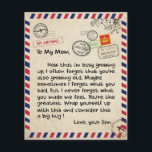 BY AIR MAIL
To My Mom,
Now that i'm busy growing
up I often forget that you're
also growing old. Maybe
sometimes I forget what you
said, but I never forget what
you made me feel. You're the
greatest. Wrap yourself up
with this and consider this
a big hug!
Love, your Son